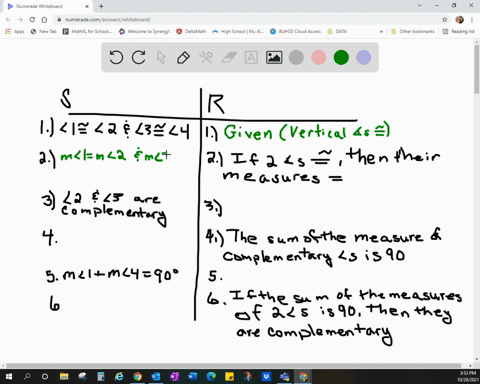 Numerade Whiteboard
numerade.com/answers/whiteboard/
Apps
MathXL for School:...
Welcome to Synergy!
DeltaMath
BUHSD Common Do...
DATA
Other bookmarks
Reading list
S R
1.) ∠1≅∠2 & ∠3≅∠4
1.) Given (Vertical ∠s ≅)
2.) m∠1=m∠2 & m∠
2.) If 2 ∠s ≅, then their
measures =
3) ∠2 & ∠3 are
complementary
3.)
4.
4.) The sum of the measure of
complementary ∠s is 90
5. m∠1+m∠4=90°
5.
6
6. If the sum of the measures
of 2∠s is 90, then they
are complementary
3:52 PM
10/20/2021